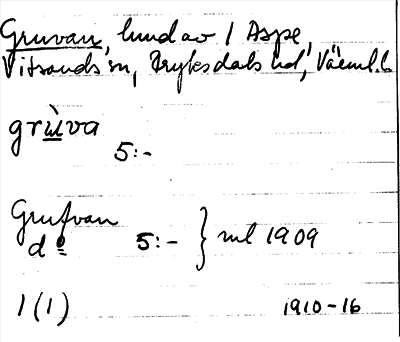 Gruvan, hund av 1 Aspe,
Vitsands sn, Fryksdals hd, Värml. l.
grùva
5:-
Grufvan
d o 5:- } ml 1909
1 (1) 1910-16